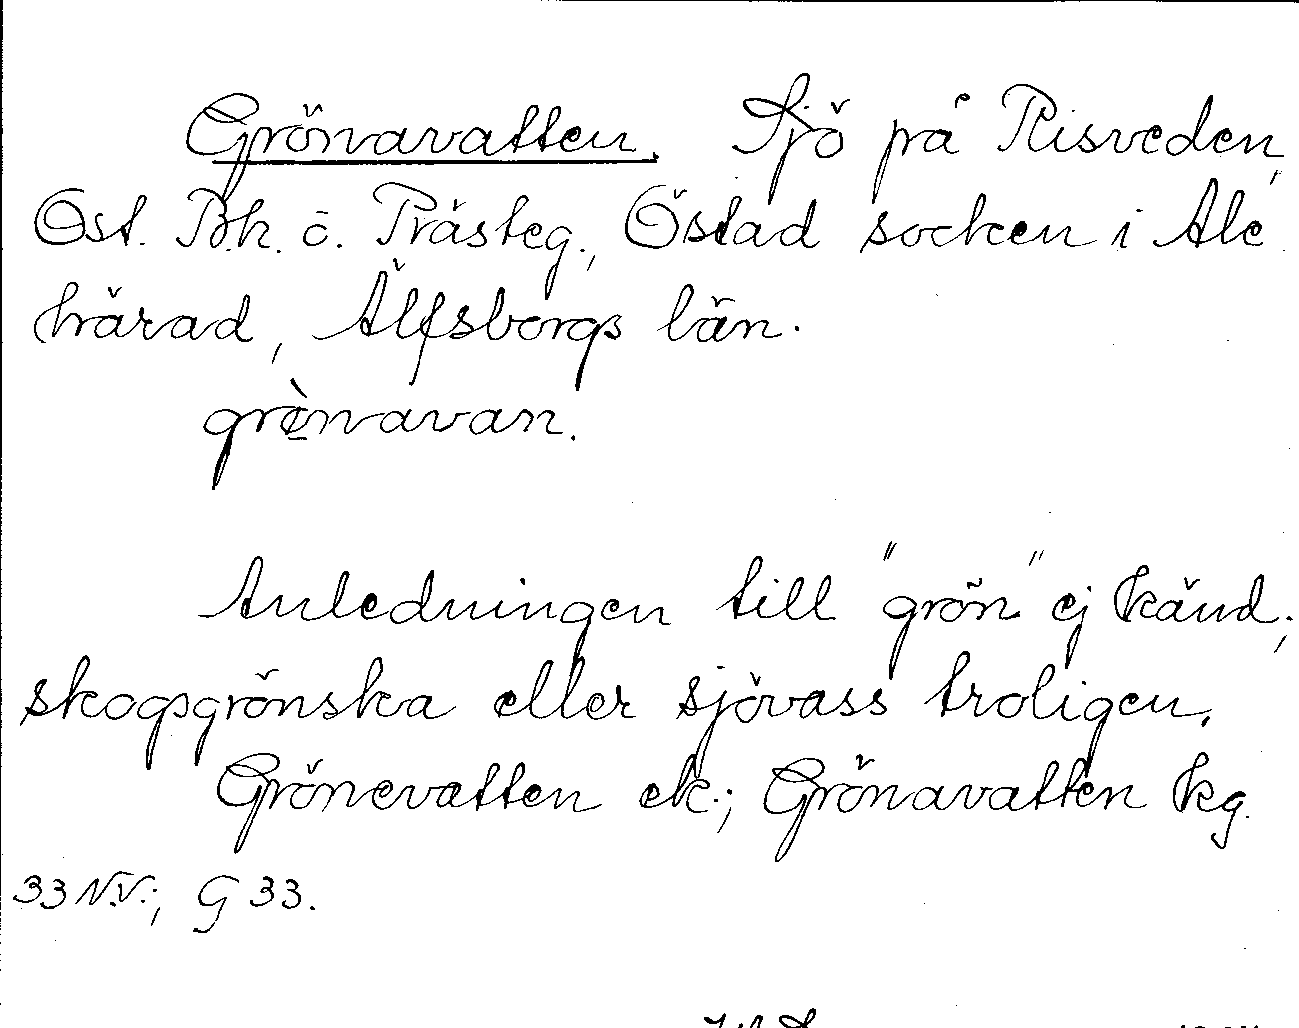 Grönavatten. Sjö på Risveden,
Ost. Bh. o. Prästeg., Östad socken i Ale
härad, Älfsborgs län.
grø̀navan.
Anledningen till "grön" ej känd;
skogsgrönska eller sjövass troligen.
Grönevatten ek.; Grönavatten kg.
33 N.V.; G 33.